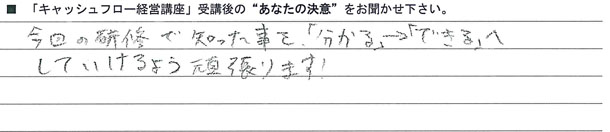 ■ 「キャッシュフロー経営講座」受講後の“あなたの決意”をお聞かせ下さい。
今回の研修で知った事を、「分かる」→「できる」へ
していけるよう頑張ります!